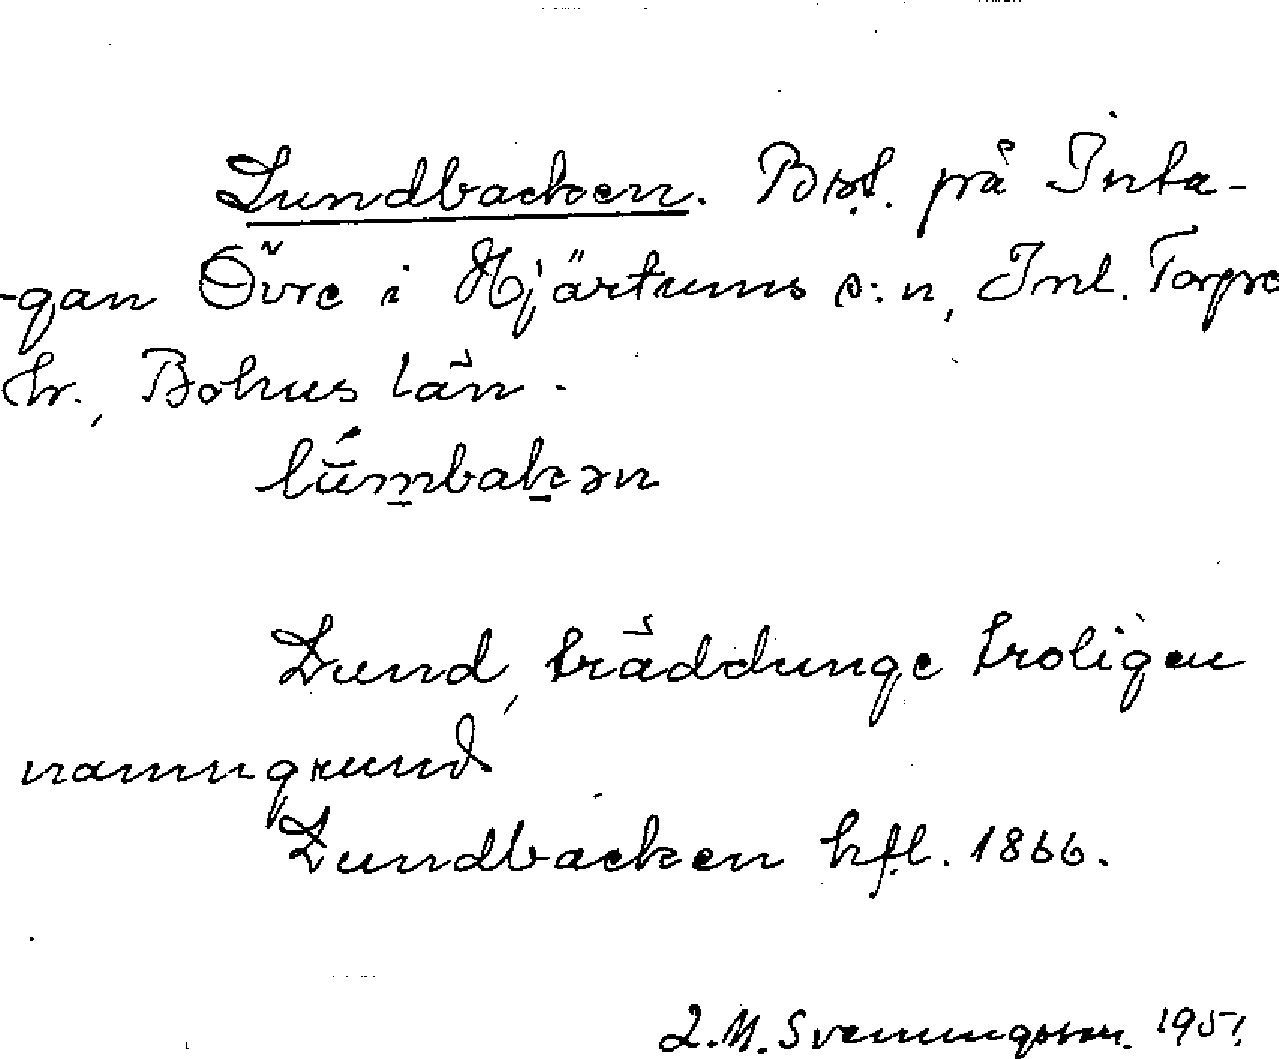 Lundbacken. Bst. på Inta-
-gan Övre i Hjärtums s:n, Inl. Torpe
hr., Bohus län.
lu̇́m̱baḵən
Lund, träddunge troligen
namngrund
Lundbacken hfl. 1866.
L.M. Svenungsson. 1951.